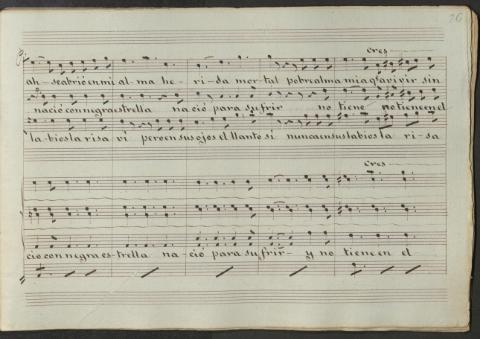 20
cres
ah- se abrió en mi al- ma he- ri- da mor tal pobre alma mia q.e a vivir sin
nació con negra estrella na ció para sufrir no tiene no tiene en el
labios la risa vi pero en sus ojos el llanto sí nunca en sus labios la ri- sa
cres
ció con negra es- trella na- ció para su frir- y no tiene en el